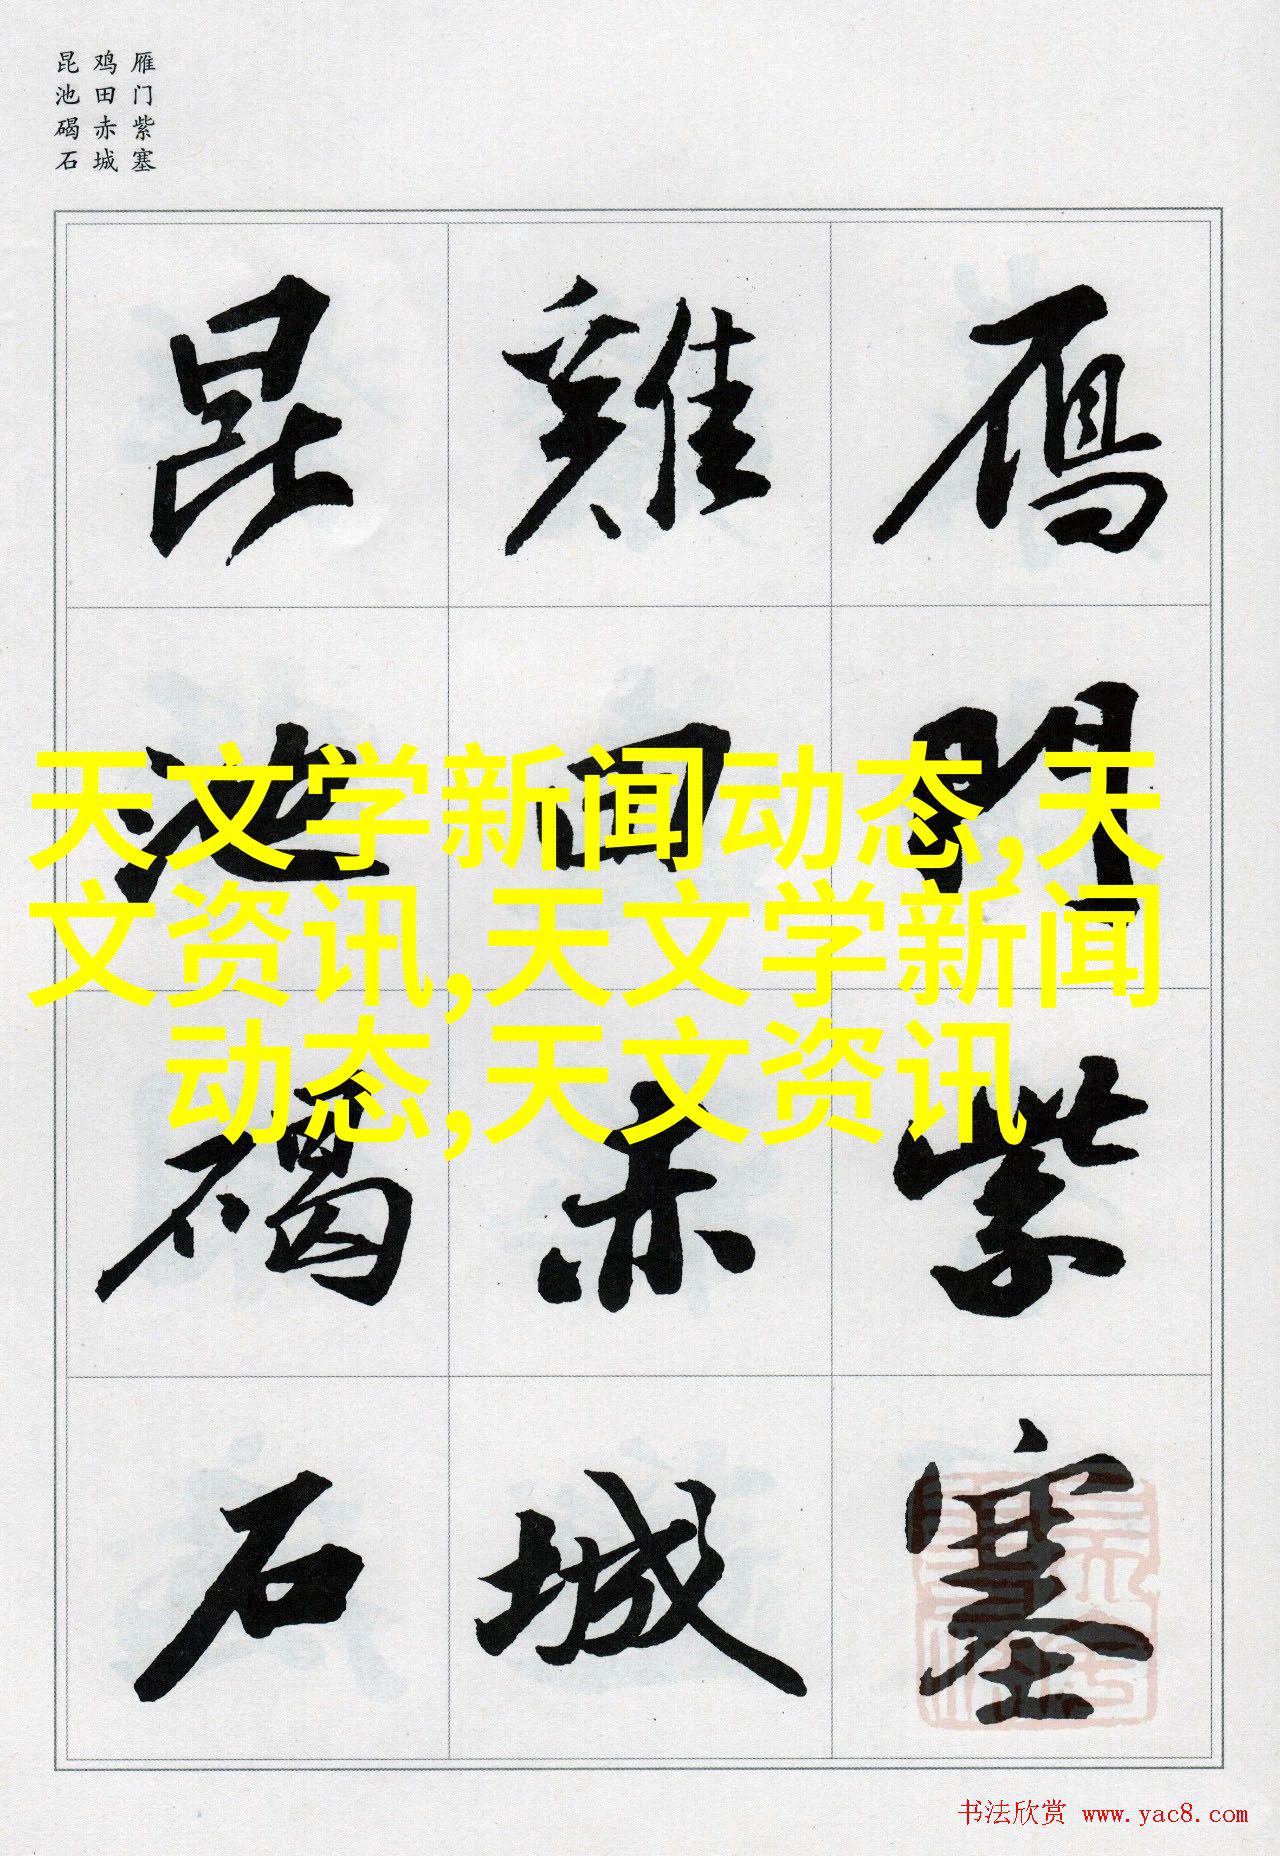 雁门紫塞
鸡田赤城
昆池碣石
鴈門紫塞
雞田赤城
昆池碣石
天文学新闻动态,天
文资讯,天文学新闻
动态,天文资讯
书法欣赏 www.yac8.com